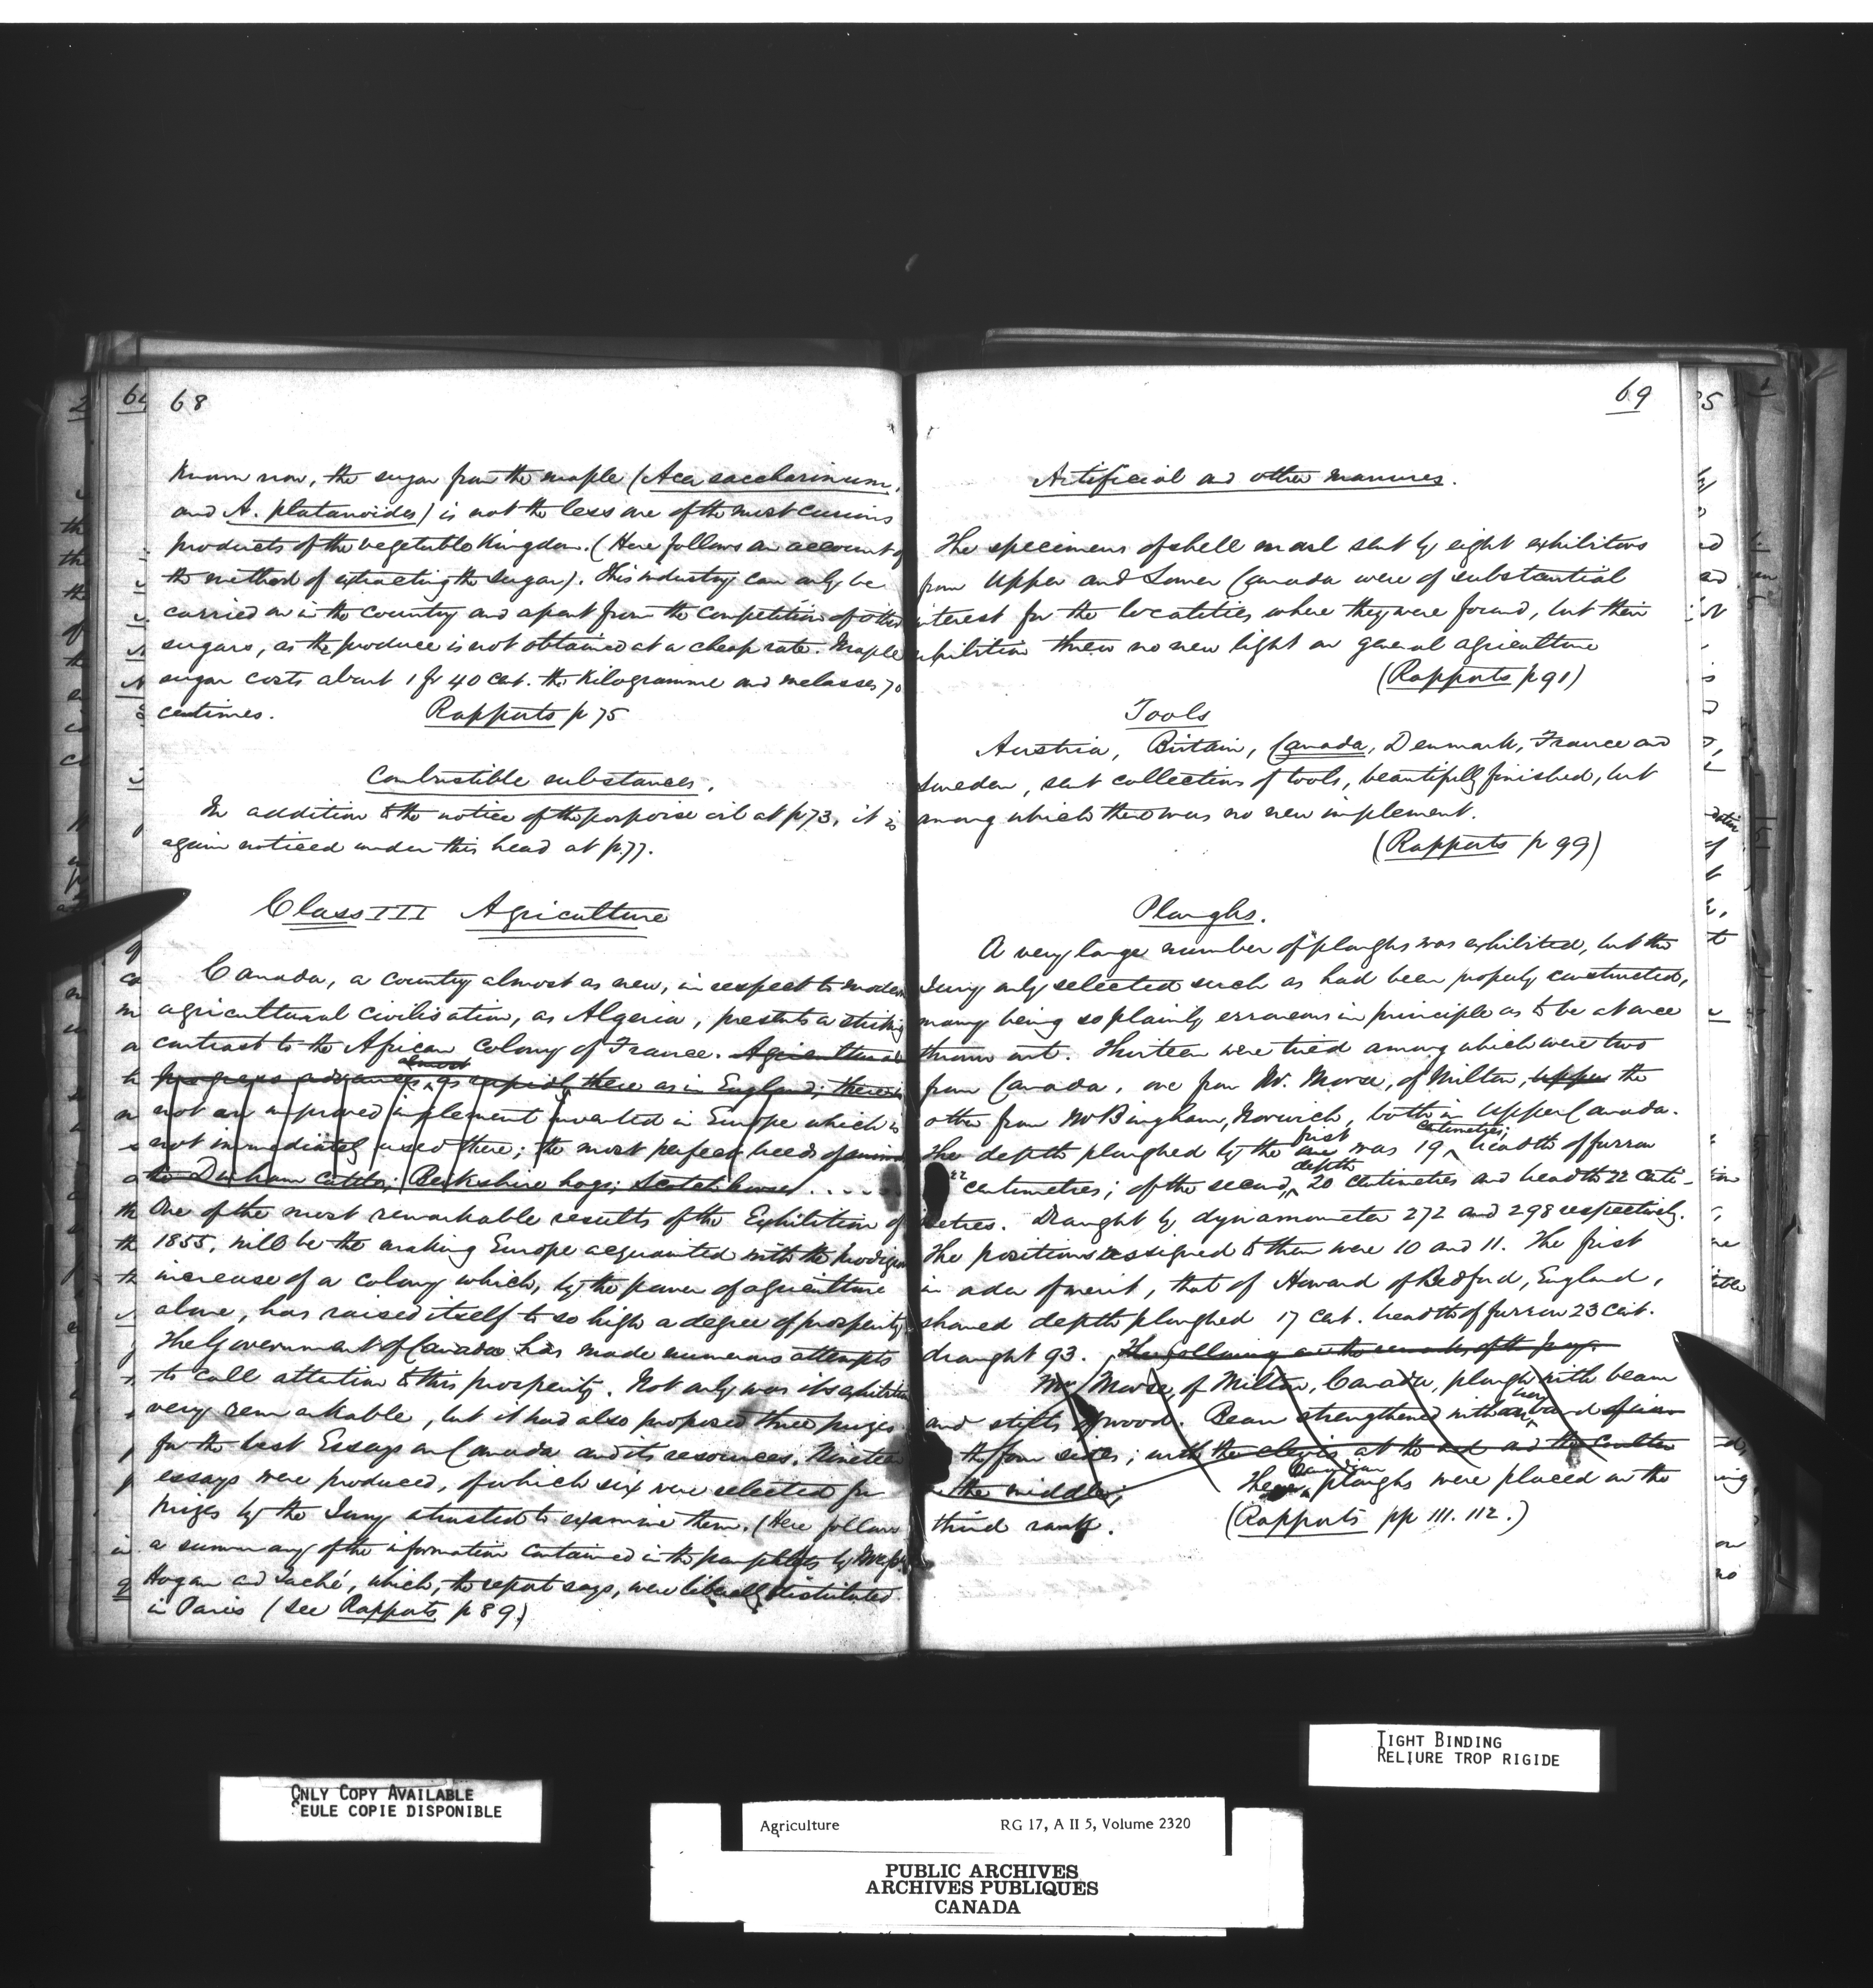 68
Known now, the sugar from the maple (Acer saccharinum,
and A. platanoides) is not the less one of the most curious
products of the vegetable Kingdom. (Here follows an account of
the method of extracting the sugar). This industry can only be
carried on in the country and apart from the competition of other
sugars, as the produce is not obtained at a cheap rate. Maple
sugar costs about 1 fr 40 cent. the Kilogramme and melasses 70
centimes. Rapports p 75
Combustible substances.
In addition to the notice of the porpoise oil at p 73, it is
again noticed under this head at p. 77.
Class III Agriculture
Canada, a country almost as new, in respect to modern
agricultural civilisation, as Algeria, presents a striking
contrast to the African Colony of France. Agricultural
progress advances almost as rapidly there as in England; there is
not an improved implement invented in Europe which is
not immediately used there; the most perfect breeds of animals
the Durham cattle; Berkshire hogs; Scotch horses . . . . .
One of the most remarkable results of the Exhibition of
1855, will be the making Europe acquainted with the prodigious
increase of a colony which, by the power of agriculture
alone, has raised itself to so high a degree of prosperity
The Government of Canada has made numerous attempts
to call attention to this prosperity. Not only was its exhibition
very remarkable, but it had also proposed three prizes
for the best Essays on Canada and its resources. Nineteen
essays were produced, of which six were selected for
prizes by the Jury entrusted to examine them. (Here follows
a summary of the information contained in the pamphlets by Messrs
Hogan and Taché, which, the report says, were liberally distributed
in Paris (See Rapports p 89.)
69
Artificial and other manures.
The specimens of shell marl sent by eight exhibitors
from Upper and Lower Canada were of substantial
interest for the localities where they were found, but their
exhibition threw no new light on general agriculture
(Rapports p 91)
Tools
Austria, Britain, Canada, Denmark, France and
Sweden, sent collections of tools, beautifully finished, but
among which there was no new implement.
(Rapports p 99)
Ploughs.
A very large number of ploughs was exhibited, but the
Jury only selected such as had been properly constructed,
many being so plainly erroneous in principle as to be at once
thrown out. Thirteen were tried among which were two
from Canada, one from Mr. Morse, of Milton, Upper the
other from Mr Bingham, Norwich, both in Upper Canada.
The depth ploughed by the first one was 19 centimetres; breadth of furrow
22 centimetres; of the second, depth 20 centimetres and breadth 22 centi-
metres. Draught by dynamometer 272 and 298 respectively.
The positions assigned to them were 10 and 11. The first
in order of merit, that of Howard of Bedford, England,
showed depth ploughed 17 cent. breadth of furrow 23 cent.
draught 93. The following are the remarks of the jury.
Mr Morse, of Milton, Canada, plough with beam
and stilts of wood. Beam strengthened with band of iron
the four sides; with the clevis at the end and the Coulter
the middle; The Canadian ploughs were placed in the
third rank. (Rapports pp 111. 112.)
ONLY COPY AVAILABLE
SEULE COPIE DISPONIBLE
TIGHT BINDING
RELIURE TROP RIGIDE
Agriculture RG 17, A II 5, Volume 2320
PUBLIC ARCHIVES
ARCHIVES PUBLIQUES
CANADA